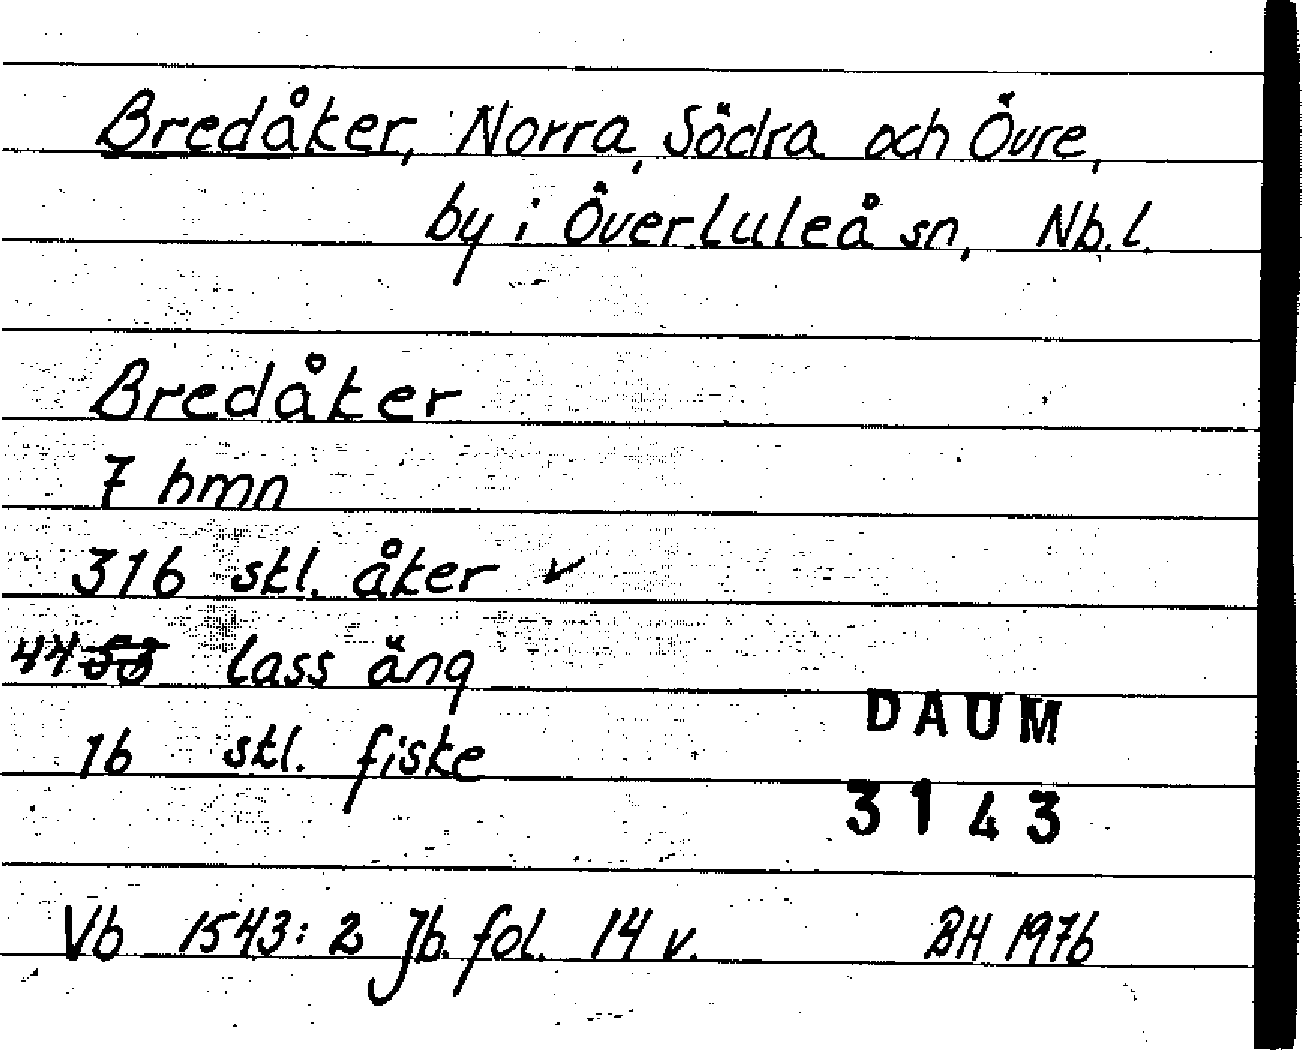 Bredåker, Norra, Södra och Övre,
by i Överluleå sn, Nb.l.
Bredåker
7 hmn
316 skl. åker ✓
44 53 lass äng
16 skl. fiske
DAUM
3143
Vb 1543:2 Jb. fol. 14 v. BH 1976